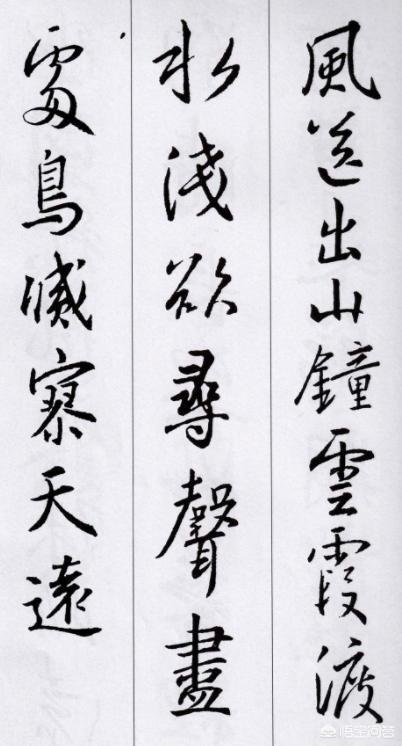 風送出山鐘雲霞渡
水淺欲尋聲盡
處鳥滅寥天遠
悟空问答